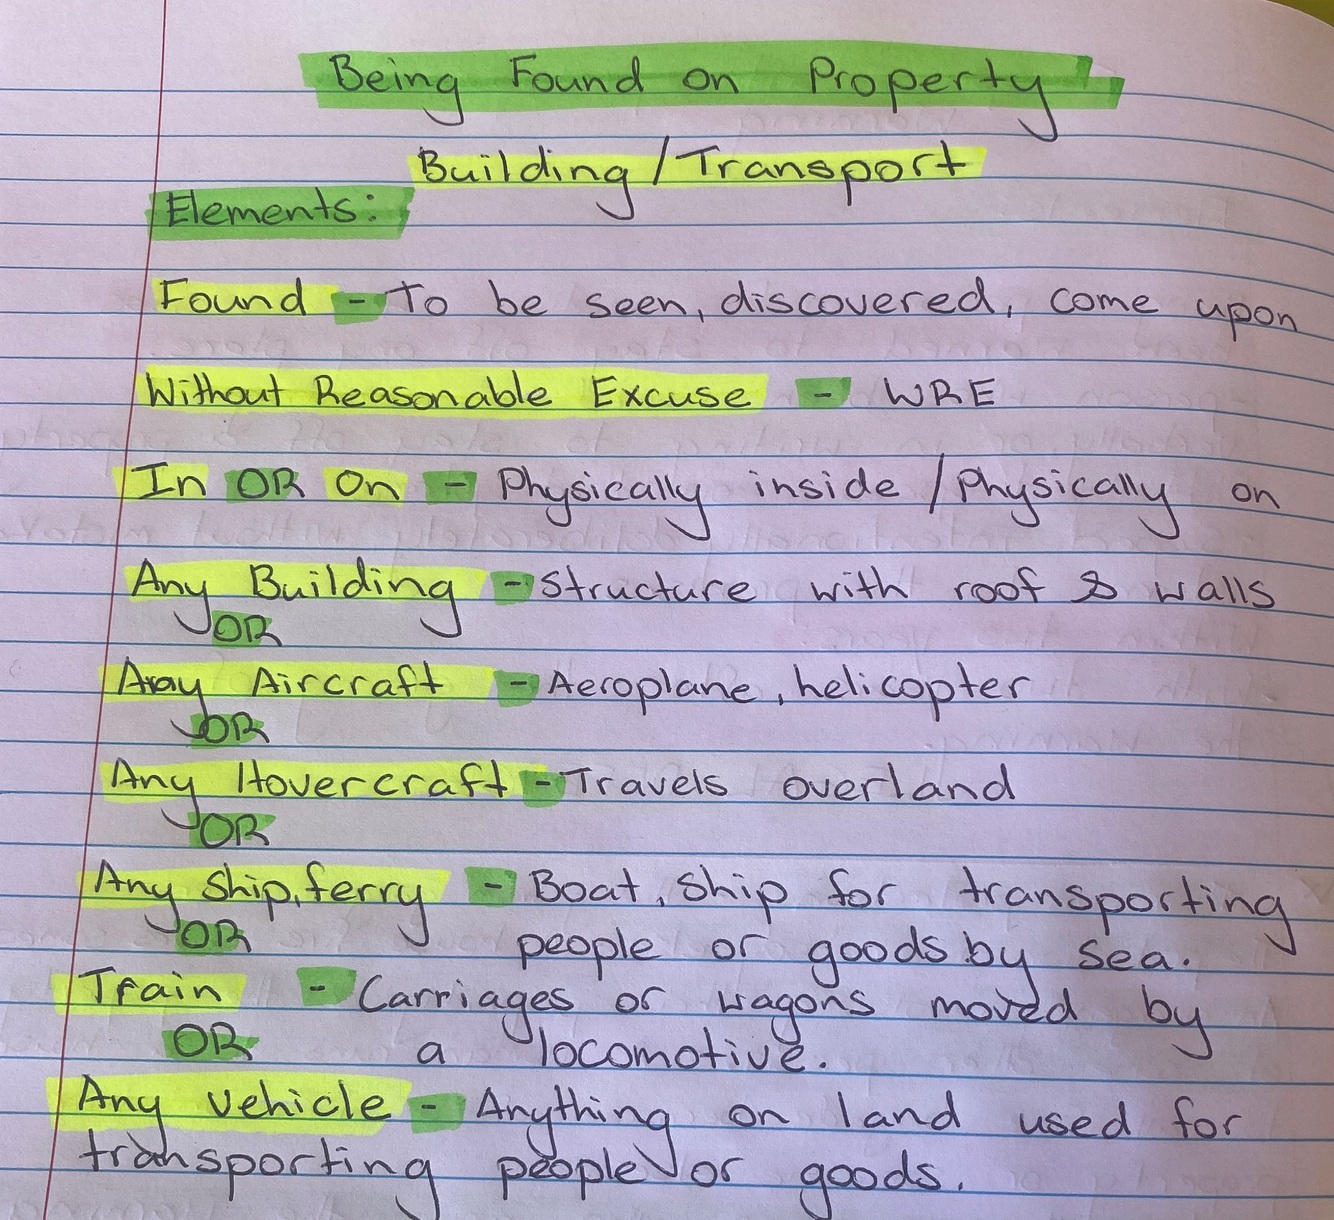 Being Found on Property
Building / Transport
Elements:
Found - To be seen, discovered, come upon
Without Reasonable Excuse - WRE
In OR On - Physically inside / Physically on
Any Building - Structure with roof & walls
OR
Any Aircraft - Aeroplane, helicopter
OR
Any Hovercraft - Travels overland
OR
Any ship, ferry - Boat, ship for transporting
OR people or goods by sea.
Train - Carriages or wagons moved by
OR a locomotive.
Any vehicle - Anything on land used for
transporting people or goods.